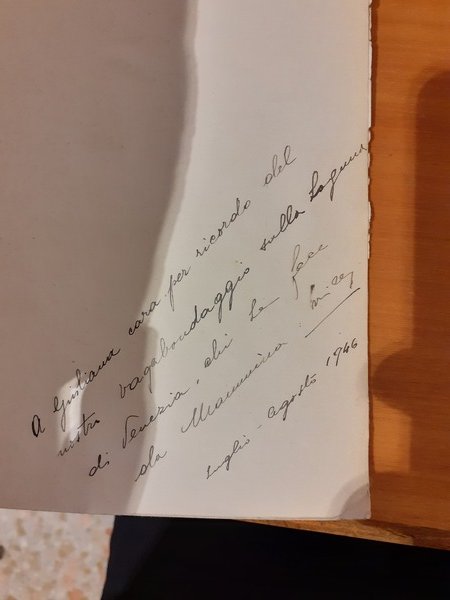 A Giuliana cara per ricordo del
nostro vagabondaggio sulla Laguna
di Venezia, chi Le fece
da Mammina:
Luglio - Agosto 1946